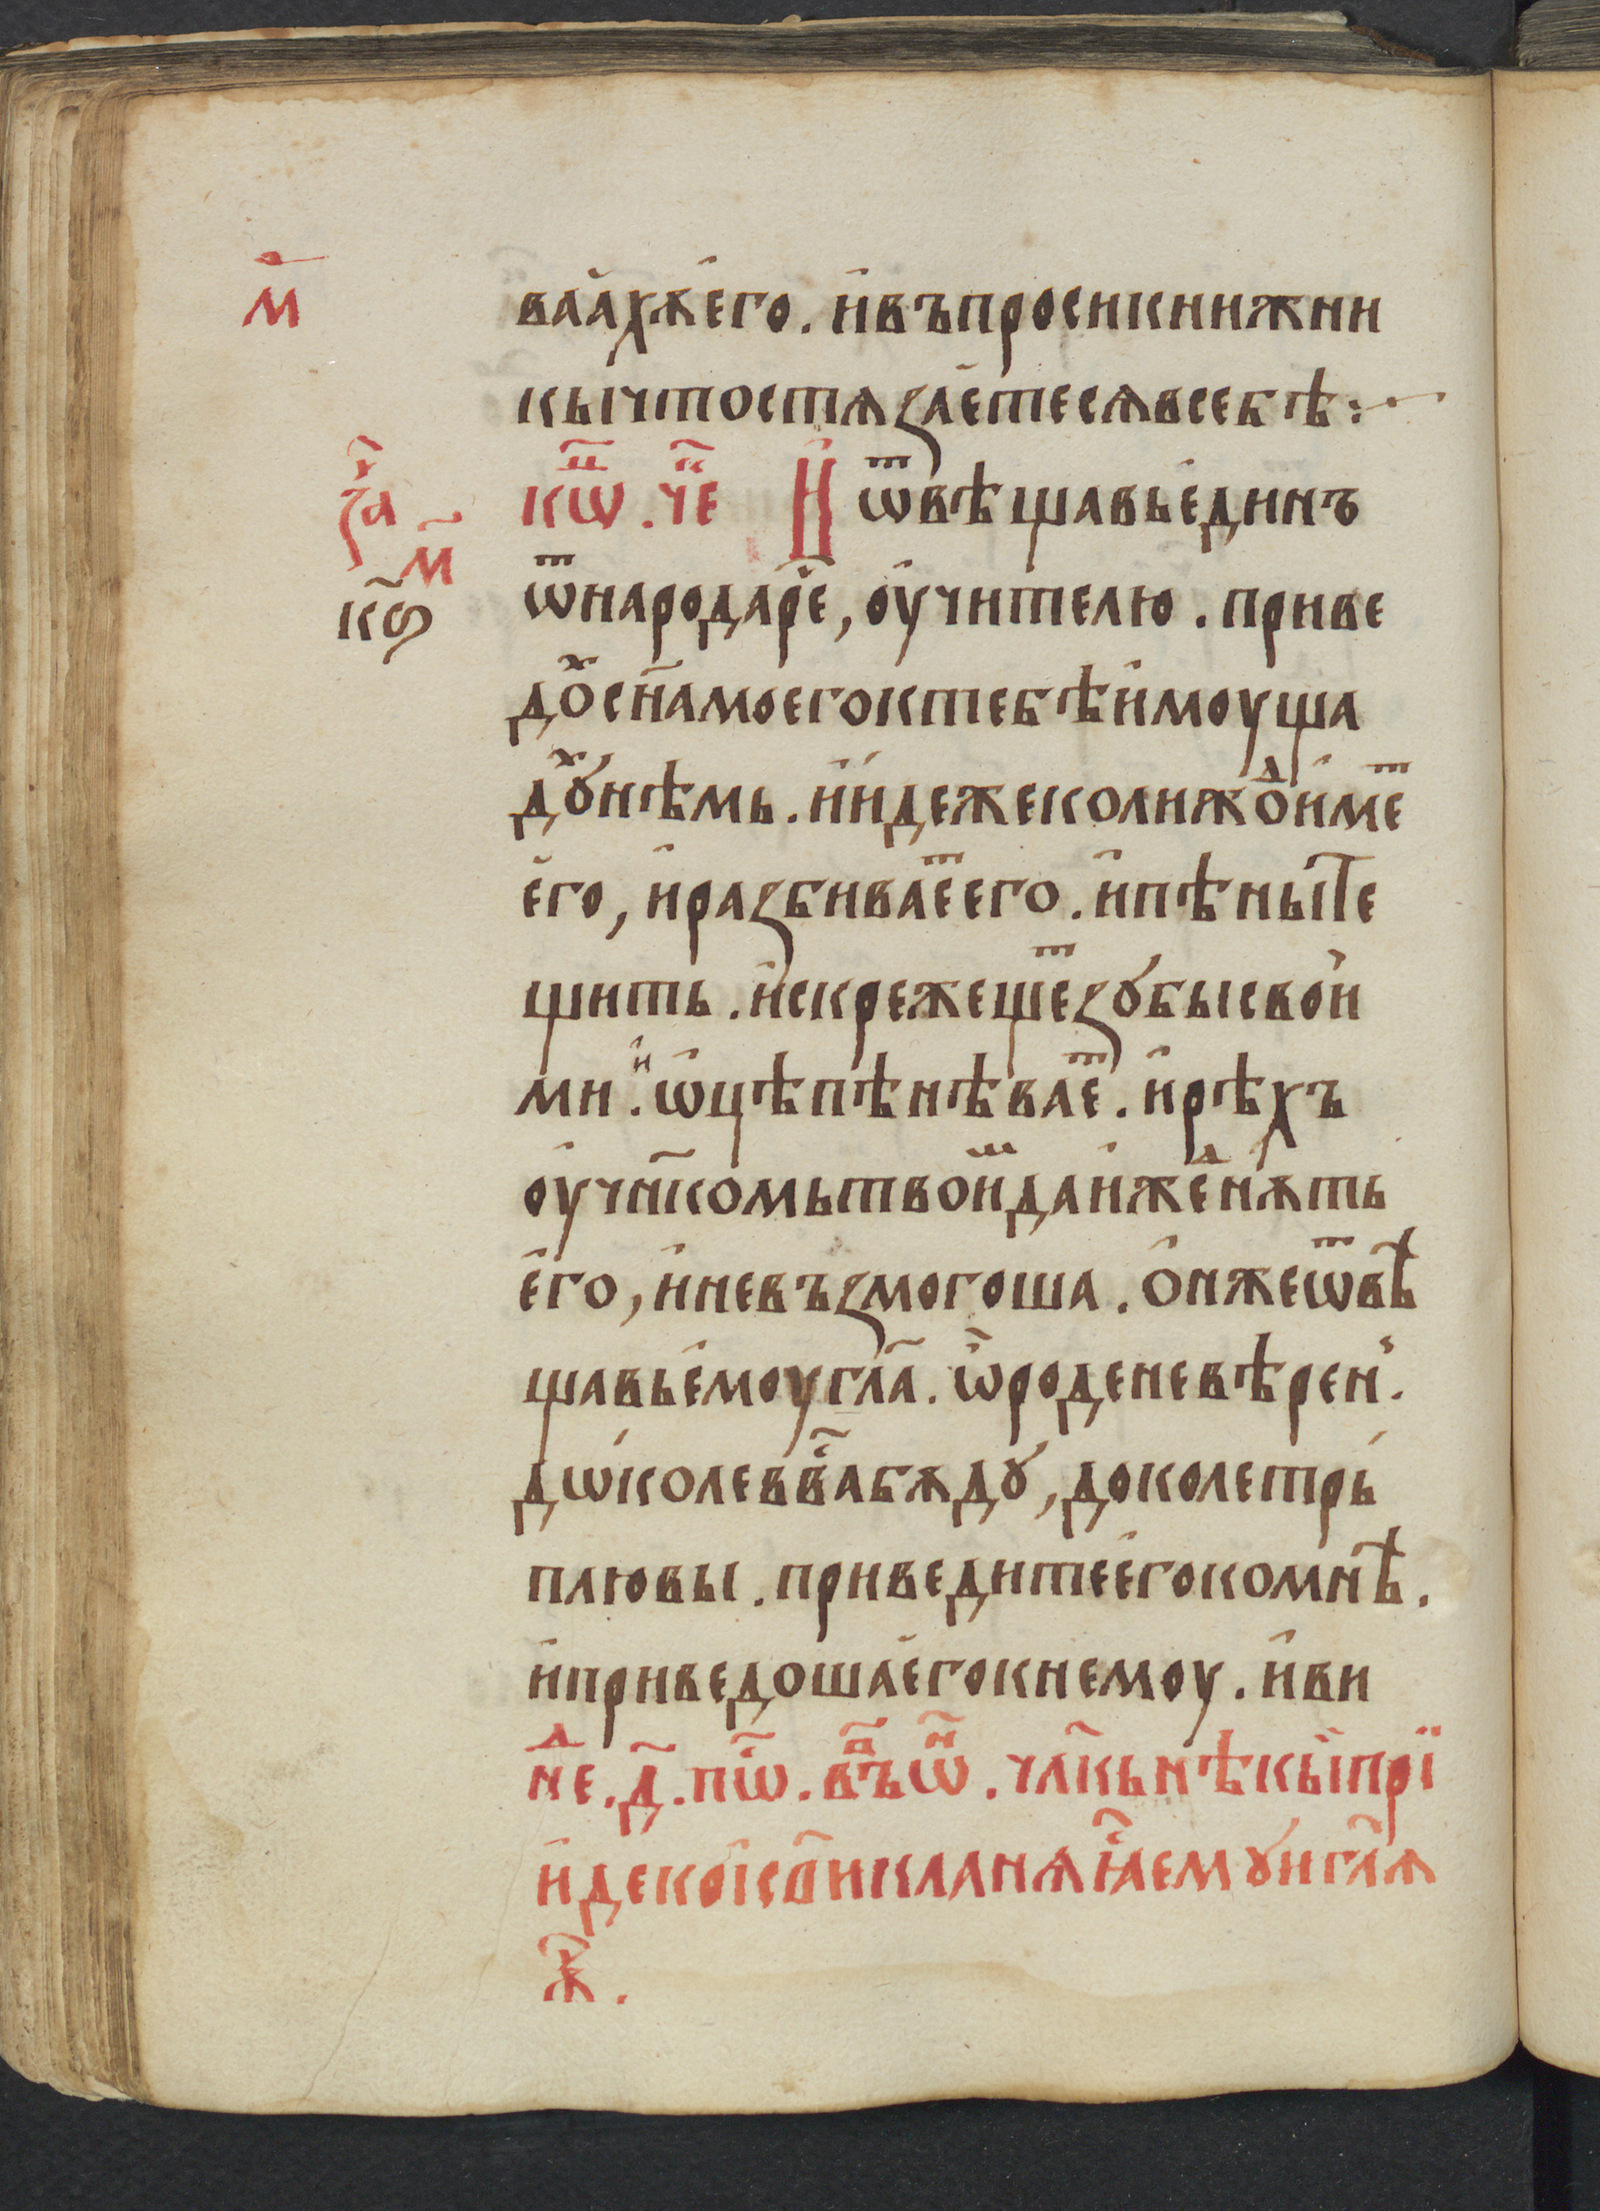 м҃
ваа́хѫ е҆го. и҆ въпроси книжни
кы что стѧзае҆тесѧ в себѣ :·
кѡⷩ҇ц . чеⷦ҇ И҆ ѿвѣщавь е҆динъ
за҃ч
м҃
ѿ народа ре҃, оу҆чителю . приве
к҃ѕ
доⷯ сн҃а моего к тебѣ и҆моуща
дꙋⷯ нѣмь . и҆ и҆дежеколижⷣо и҆меⷮ
е҆го, и҆ разбиваеⷮ его . и҆ пѣны те
щить . и҆ скрежещеⷮ зꙋбы свои҆
ми . и ѡ҆цѣпѣнѣваеⷮ . и҆ рѣхъ
оу҆чн҃комь твоиⷨ да и҆жⷣенѫть
е҆го, и҆ не възмогоша . о҆нже ѿвѣ
щавь е҆моу гл҃а . ѽ роде невѣрен .
дѡ́коле в ваⷭ҇ бѫдꙋ, доколе трь
плю вы . приведите е҆го ко мнѣ .
и҆ приведоша е҆го к немоу . и҆ ви
неⷣ . д҃ . пѡⷭ҇ . въⷡ ѡⷩ҇ . чл҃кь нѣкы прїи
и҆де ко і҆с҃ви кланѧѧсѧ емꙋ и гл҃ѧ
ж҃ .